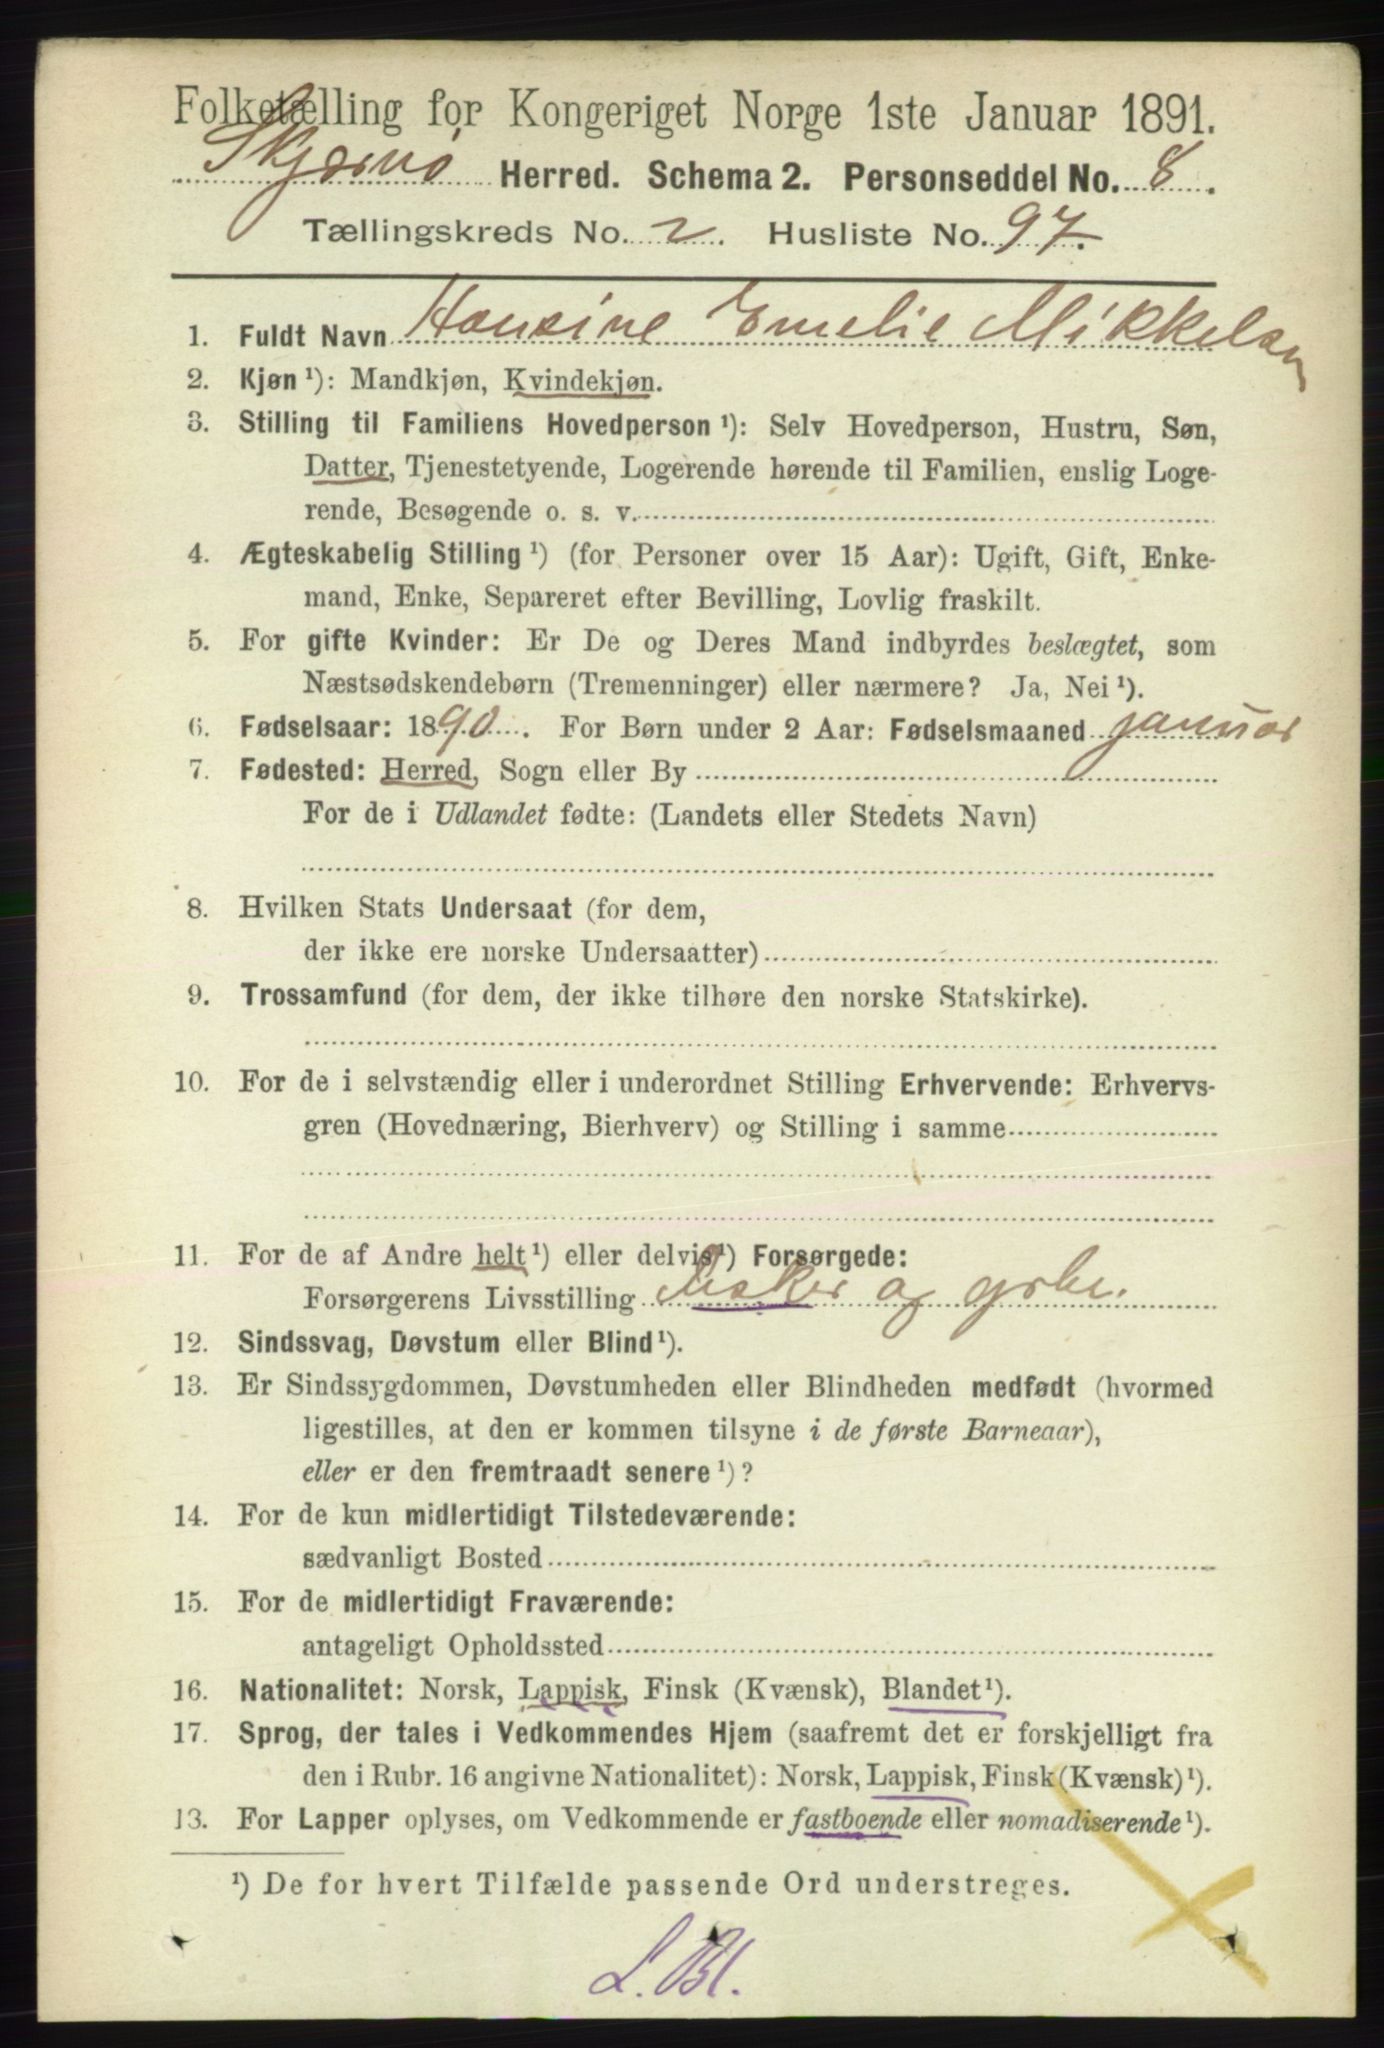 Folketælling for Kongeriget Norge 1ste Januar 1891.
Skjervø Herred. Schema 2. Personseddel No. 8.
Tællingskreds No. 2. Husliste No. 97.
1. Fuldt Navn Hansine Emelie Mikkelsen
2. Kjøn ¹): Mandkjøn, Kvindekjøn.
3. Stilling til Familiens Hovedperson ¹): Selv Hovedperson, Hustru, Søn,
Datter, Tjenestetyende, Logerende hørende til Familien, enslig Loge-
rende, Besøgende o. s. v.
4. Ægteskabelig Stilling ¹) (for Personer over 15 Aar): Ugift, Gift, Enke-
mand, Enke, Separeret efter Bevilling, Lovlig fraskilt.
5. For gifte Kvinder: Er De og Deres Mand indbyrdes beslægtet, som
Næstsødskendebørn (Tremenninger) eller nærmere? Ja, Nei ¹).
6. Fødselsaar: 1890. For Børn under 2 Aar: Fødselsmaaned januar
7. Fødested: Herred, Sogn eller By
For de i Udlandet fødte: (Landets eller Stedets Navn)
8. Hvilken Stats Undersaat (for dem,
der ikke ere norske Undersaatter)
9. Trossamfund (for dem, der ikke tilhøre den norske Statskirke).
10. For de i selvstændig eller i underordnet Stilling Erhvervende: Erhvervs-
gren (Hovednæring, Bierhverv) og Stilling i samme
11. For de af Andre helt ¹) eller delvis ¹) Forsørgede:
Forsørgerens Livsstilling fisker og grbr.
12. Sindssvag, Døvstum eller Blind ¹).
13. Er Sindssygdommen, Døvstumheden eller Blindheden medfødt (hvormed
ligestilles, at den er kommen tilsyne i de første Barneaar),
eller er den fremtraadt senere ¹)?
14. For de kun midlertidigt Tilstedeværende:
sædvanligt Bosted
15. For de midlertidigt Fraværende:
antageligt Opholdssted
16. Nationalitet: Norsk, Lappisk, Finsk (Kvænsk), Blandet ¹).
17. Sprog, der tales i Vedkommendes Hjem (saafremt det er forskjelligt fra
den i Rubr. 16 angivne Nationalitet): Norsk, Lappisk, Finsk (Kvænsk) ¹).
13. For Lapper oplyses, om Vedkommende er fastboende eller nomadiserende ¹).
¹) De for hvert Tilfælde passende Ord understreges.
L. Bl.